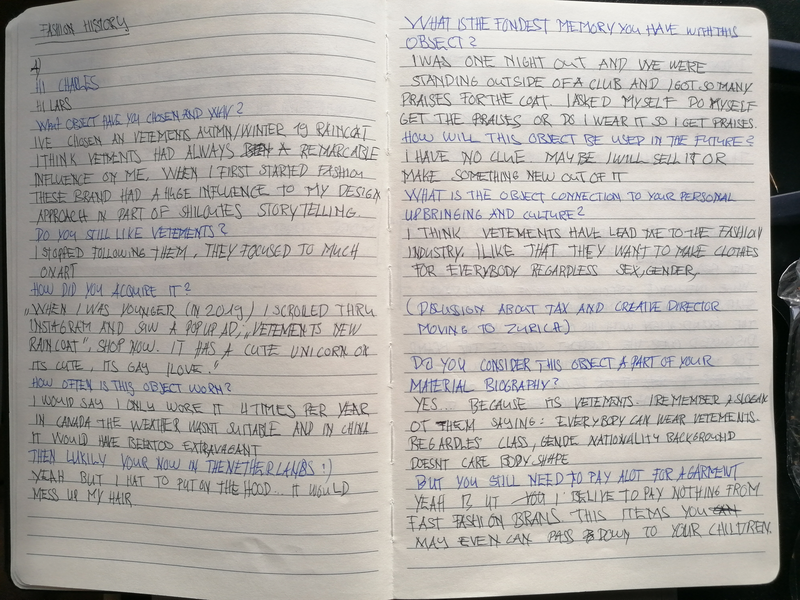 FASHION HISTORY
HI CHARLES
HI LARS
WHAT OBJECT HAVE YOU CHOSEN AND WHY?
I'VE CHOSEN AN VETEMENTS AUTMN/WINTER 19 RAINCOAT
I THINK VETMENTS HAD ALWAYS REMARCABLE
INFLUENCE ON ME, WHEN I FIRST STARTED FASHION
THESE BRAND HAD A HUGE INFLUENCE TO MY DESIGN
APPROACH IN PART OF SHILOUTES STORYTELLING
DO YOU STILL LIKE VETEMENTS?
I STOPPED FOLLOWING THEM, THEY FOCUSED TO MUCH
ON ART
HOW DID YOU ACQUIRE IT?
"WHEN I WAS YOUNGER (IN 2019) I SCROLED THRU
INSTAGRAM AND SAW A POP UP AD; „VETEMENTS NEW
RAINCOAT", SHOP NOW. IT HAS A CUTE UNICORN ON
ITS CUTE, ITS GAY I LOVE."
HOW OFTEN IS THIS OBJECT WORN?
I WOULD SAY I ONLY WORE IT 4 TIMES PER YEAR
IN CANADA THE WEATHER WASNT SUITABLE AND IN CHINA
IT WOULD HAVE BEEN TOO EXTRAVAGANT
THEN LUKILY YOUR NOW IN THE NETHERLANDS! :)
YEAH BUT I HAT TO PUT ON THE HOOD... IT WOULD
MESS UP MY HAIR
WHAT IS THE FONDEST MEMORY YOU HAVE WITH THIS
OBJECT?
I WAS ONE NIGHT OUT AND WE WERE
STANDING OUTSIDE OF A CLUB AND I GOT SO MANY
PRAISES FOR THE COAT. I ASKED MYSELF DO MYSELF
GET THE PRAISES OR DO I WEAR IT SO I GET PRAISES.
HOW WILL THIS OBJECT BE USED IN THE FUTURE?
I HAVE NO CLUE MAYBE I WILL SELL IT OR
MAKE SOMETHING NEW OUT OF IT
WHAT IS THE OBJECT CONNECTION TO YOUR PERSONAL
UPBRINGING AND CULTURE?
I THINK VETEMENTS HAVE LEAD ME TO THE FASHION
INDUSTRY. I LIKE THAT THEY WANT TO MAKE CLOTHES
FOR EVERYBODY REGARDLESS SEX, GENDER,
(DISCUSSION ABOUT TAX AND CREATIVE DIRECTOR
MOVING TO ZURICH)
DO YOU CONSIDER THIS OBJECT A PART OF YOUR
MATERIAL BIOGRAPHY?
YES... BECAUSE ITS VETEMENTS. I REMEMBER A SLOGAN
OF THEM SAYING: EVERYBODY CAN WEAR VETEMENTS.
REGARDLES CLASS, GENDE NATIONALITY BACKGROUND
DOESNT CARE BODY SHAPE
BUT YOU STILL NEED TO PAY ALOT FOR A GARMENT
YEAH BUT I BELIVE TO PAY NOTHING FROM
FAST FASHION BRANS. THIS ITEMS YOU
MAY EVEN CAN PASS DOWN TO YOUR CHILDREN.